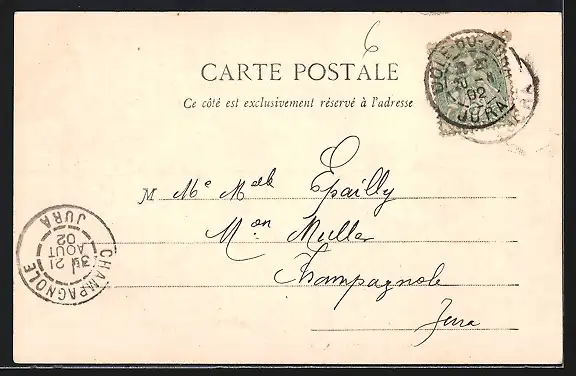 6
CARTE POSTALE
Ce côté est exclusivement réservé à l'adresse
DOLE-DU-JURA
02
JURA
M Me Melle Epailly
Mon Muller
Champagnole
Jura
CHAMPAGNOLE
3E 21
AOUT
02
JURA